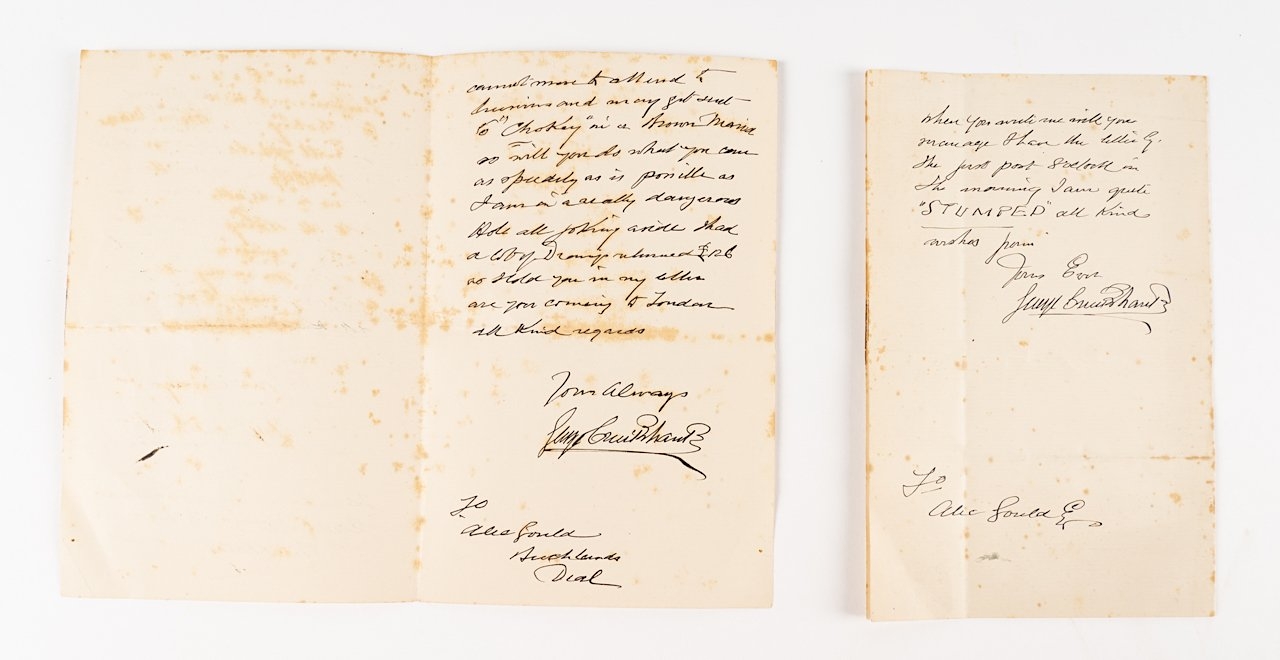 cannot move to attend to
business and may get sent
to "Chokey" in a Brown Maria
so will you do what you can
as speedily as is possible as
I am in a really dangerous
Hole all joking aside I had
a lot of Drawings returned
as I told you in my letter
are you coming to London
all Kind regards
Yours Always
George Cruikshank
To
Alec Gould
Deal
when you write me will you
manage I have the letter By
the first post 8 o'clock in
the morning I am quite
"STUMPED" all Kind
wishes from
Yours Ever
George Cruikshank
To
Alec Gould Esq